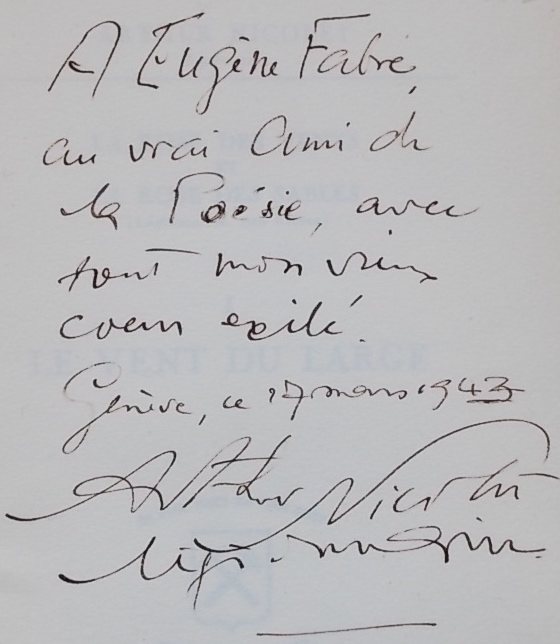 A Eugène Fabre,
au vrai Ami de
la Poésie, avec
tout mon vieux
coeur exilé.
Genève, ce 17 mars 1943
Arthur Nicolet
LE VENT DU LARGE